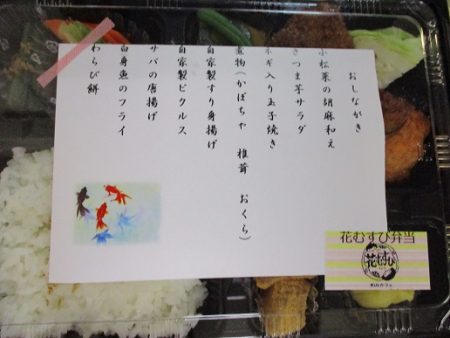 おしながき
小松菜の胡麻和え
さつま芋サラダ
ネギ入り玉子焼き
煮物(かぼちゃ 椎茸 おくら)
自家製すり身揚げ
自家製ピクルス
サバの唐揚げ
白身魚のフライ
わらび餅
花むすび弁当
花むすび